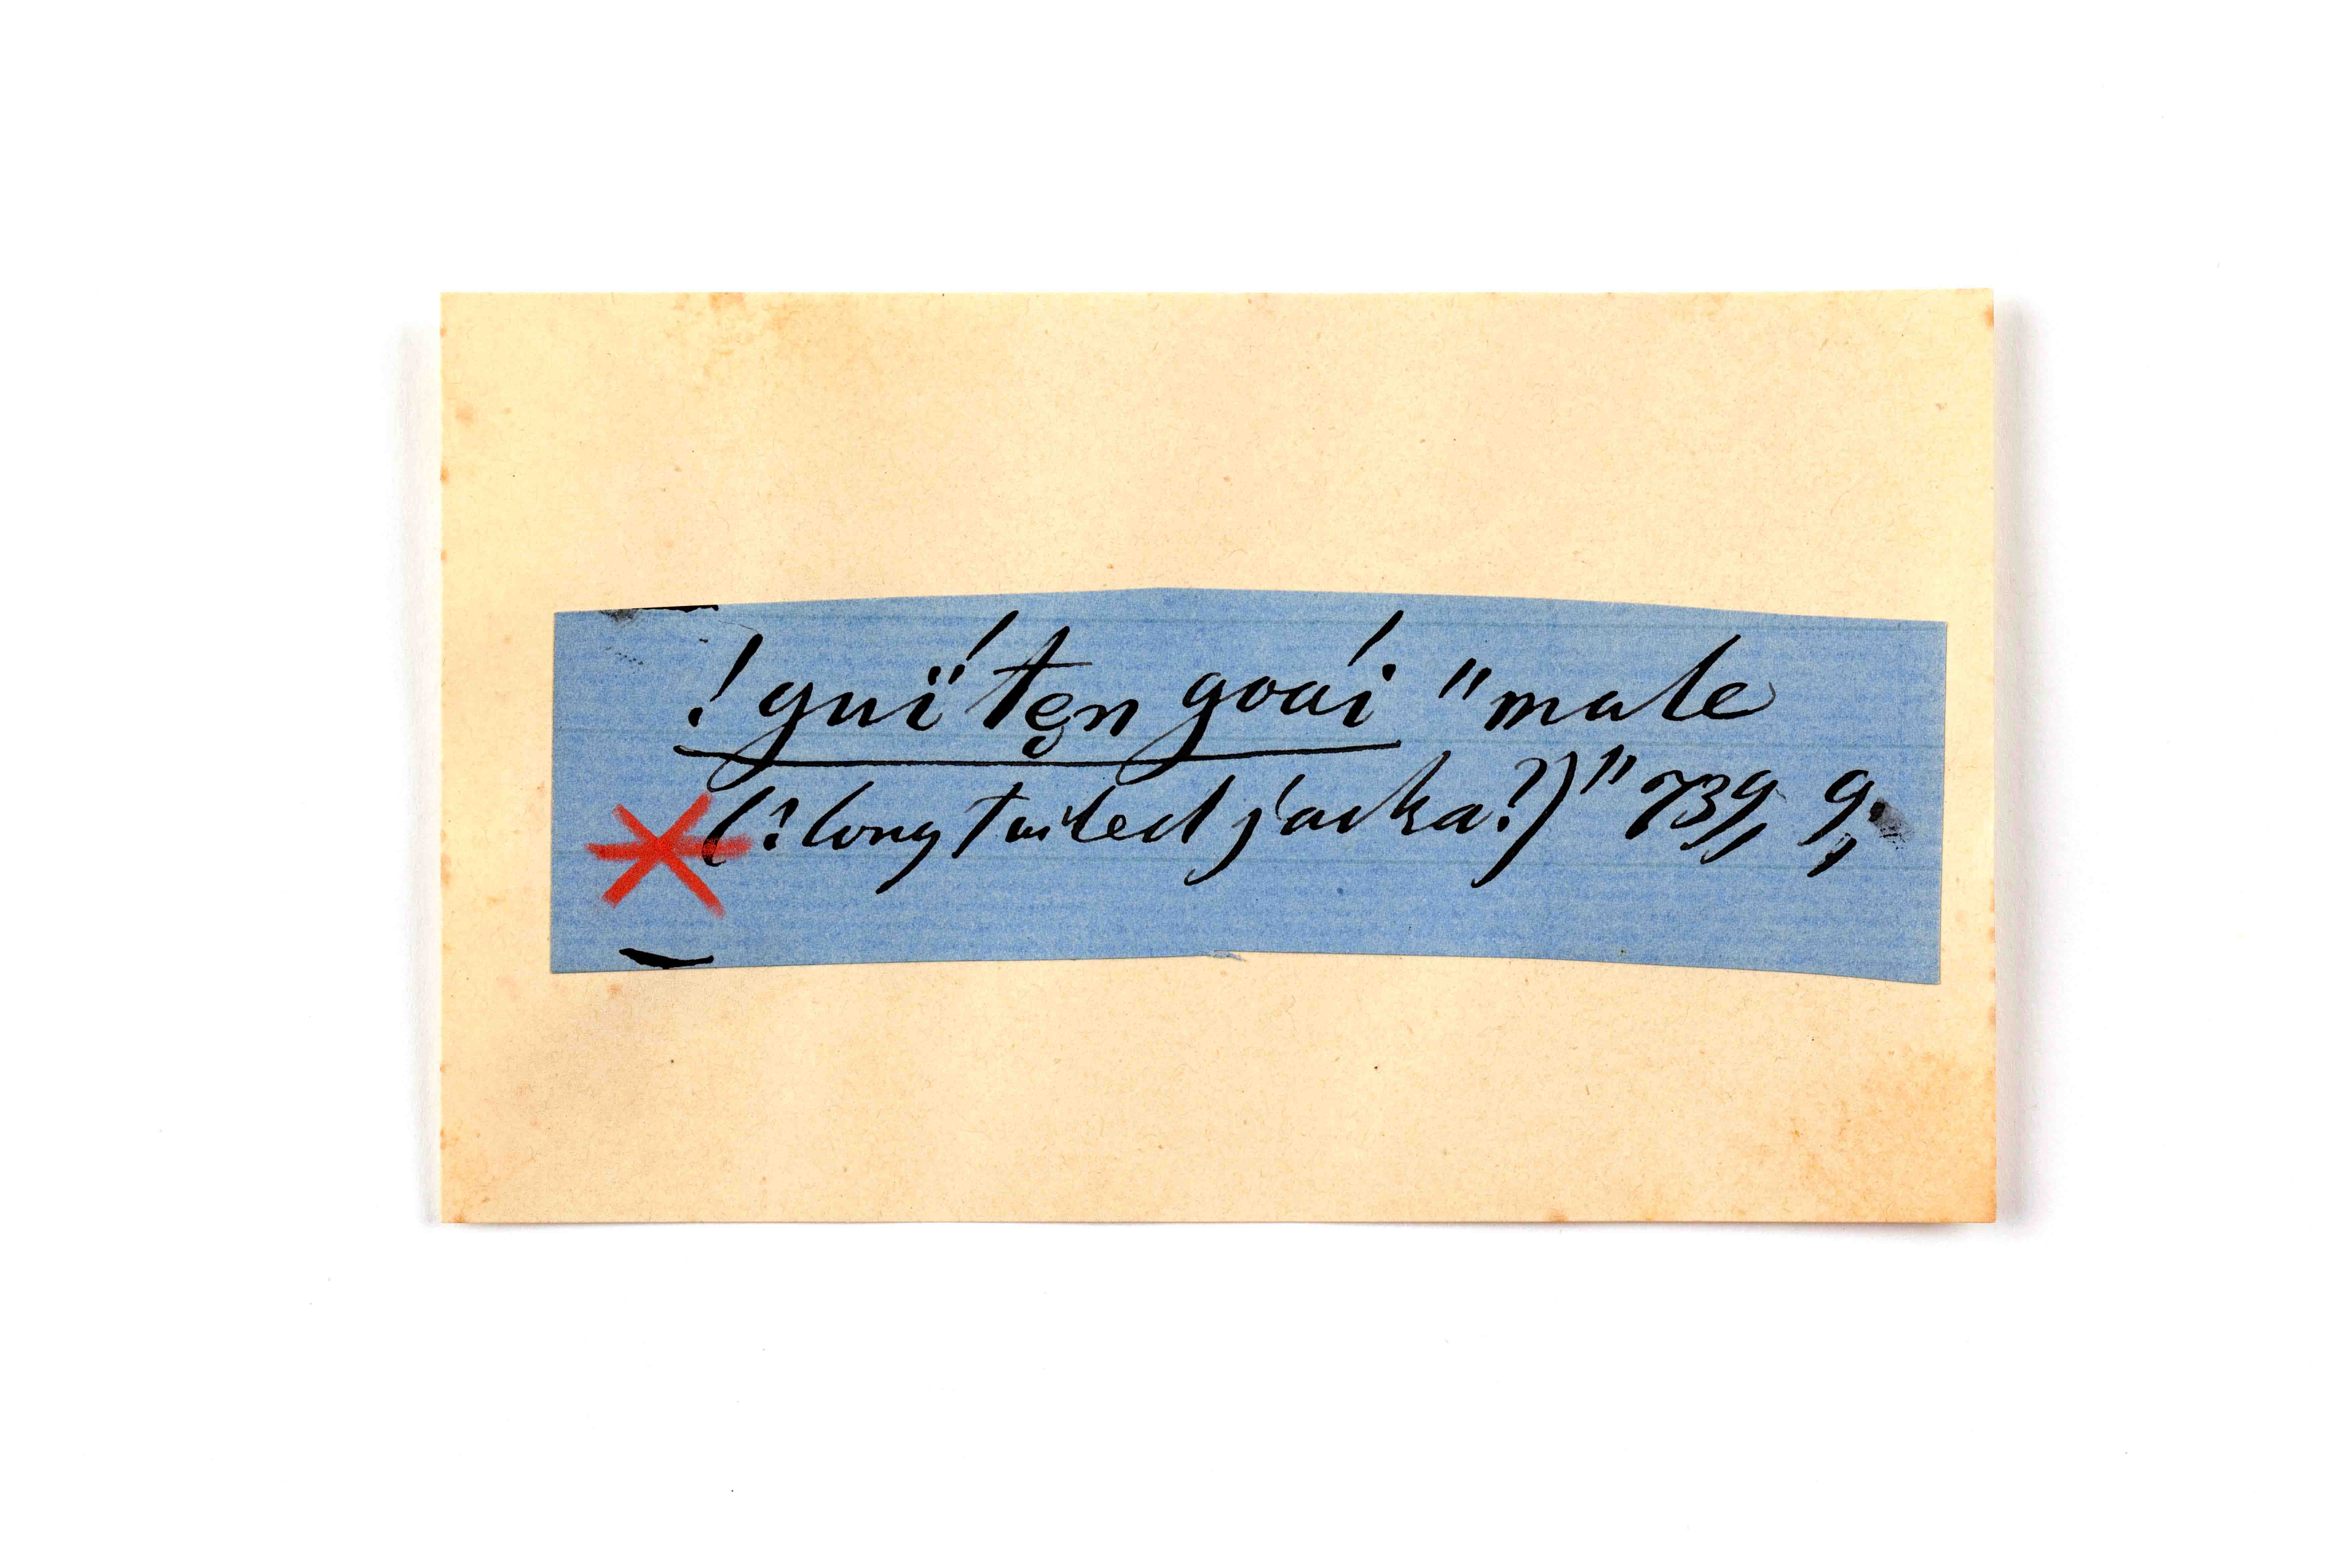 !guï'tẹn goái "male
(?long tailed jacka?)" 739, 9,